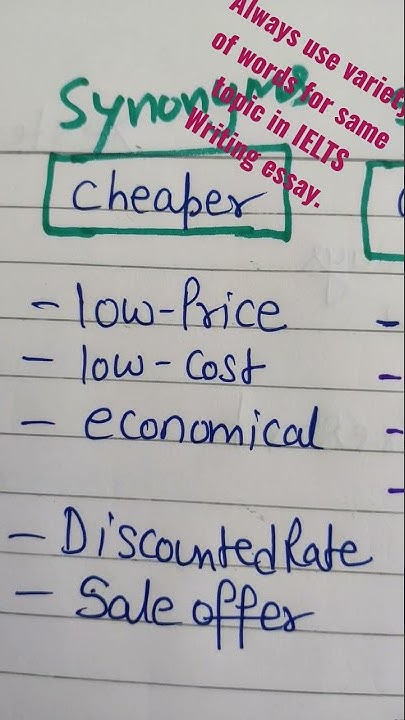 Always use variety
of words for same
topic in IELTS
Writing essay.
Synonyms
Cheaper
- low-Price
- low-cost
- economical
- Discounted Rate
- Sale offer